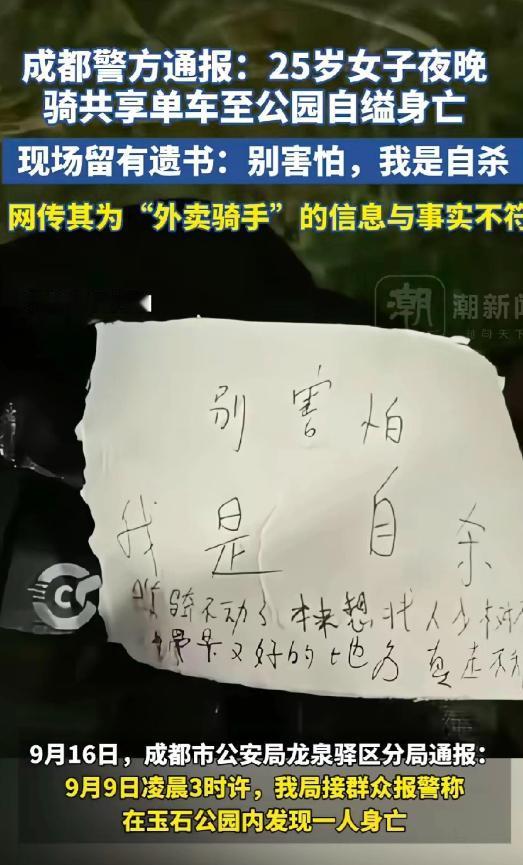 成都警方通报：25岁女子夜晚
骑共享单车至公园自缢身亡
现场留有遗书：别害怕，我是自杀
网传其为“外卖骑手”的信息与事实不符
潮新闻
别害怕
我是自杀
骑不动了 本来想找人少树
景又好的地方 真走不动
9月16日，成都市公安局龙泉驿区分局通报：
9月9日凌晨3时许，我局接群众报警称
在玉石公园内发现一人身亡